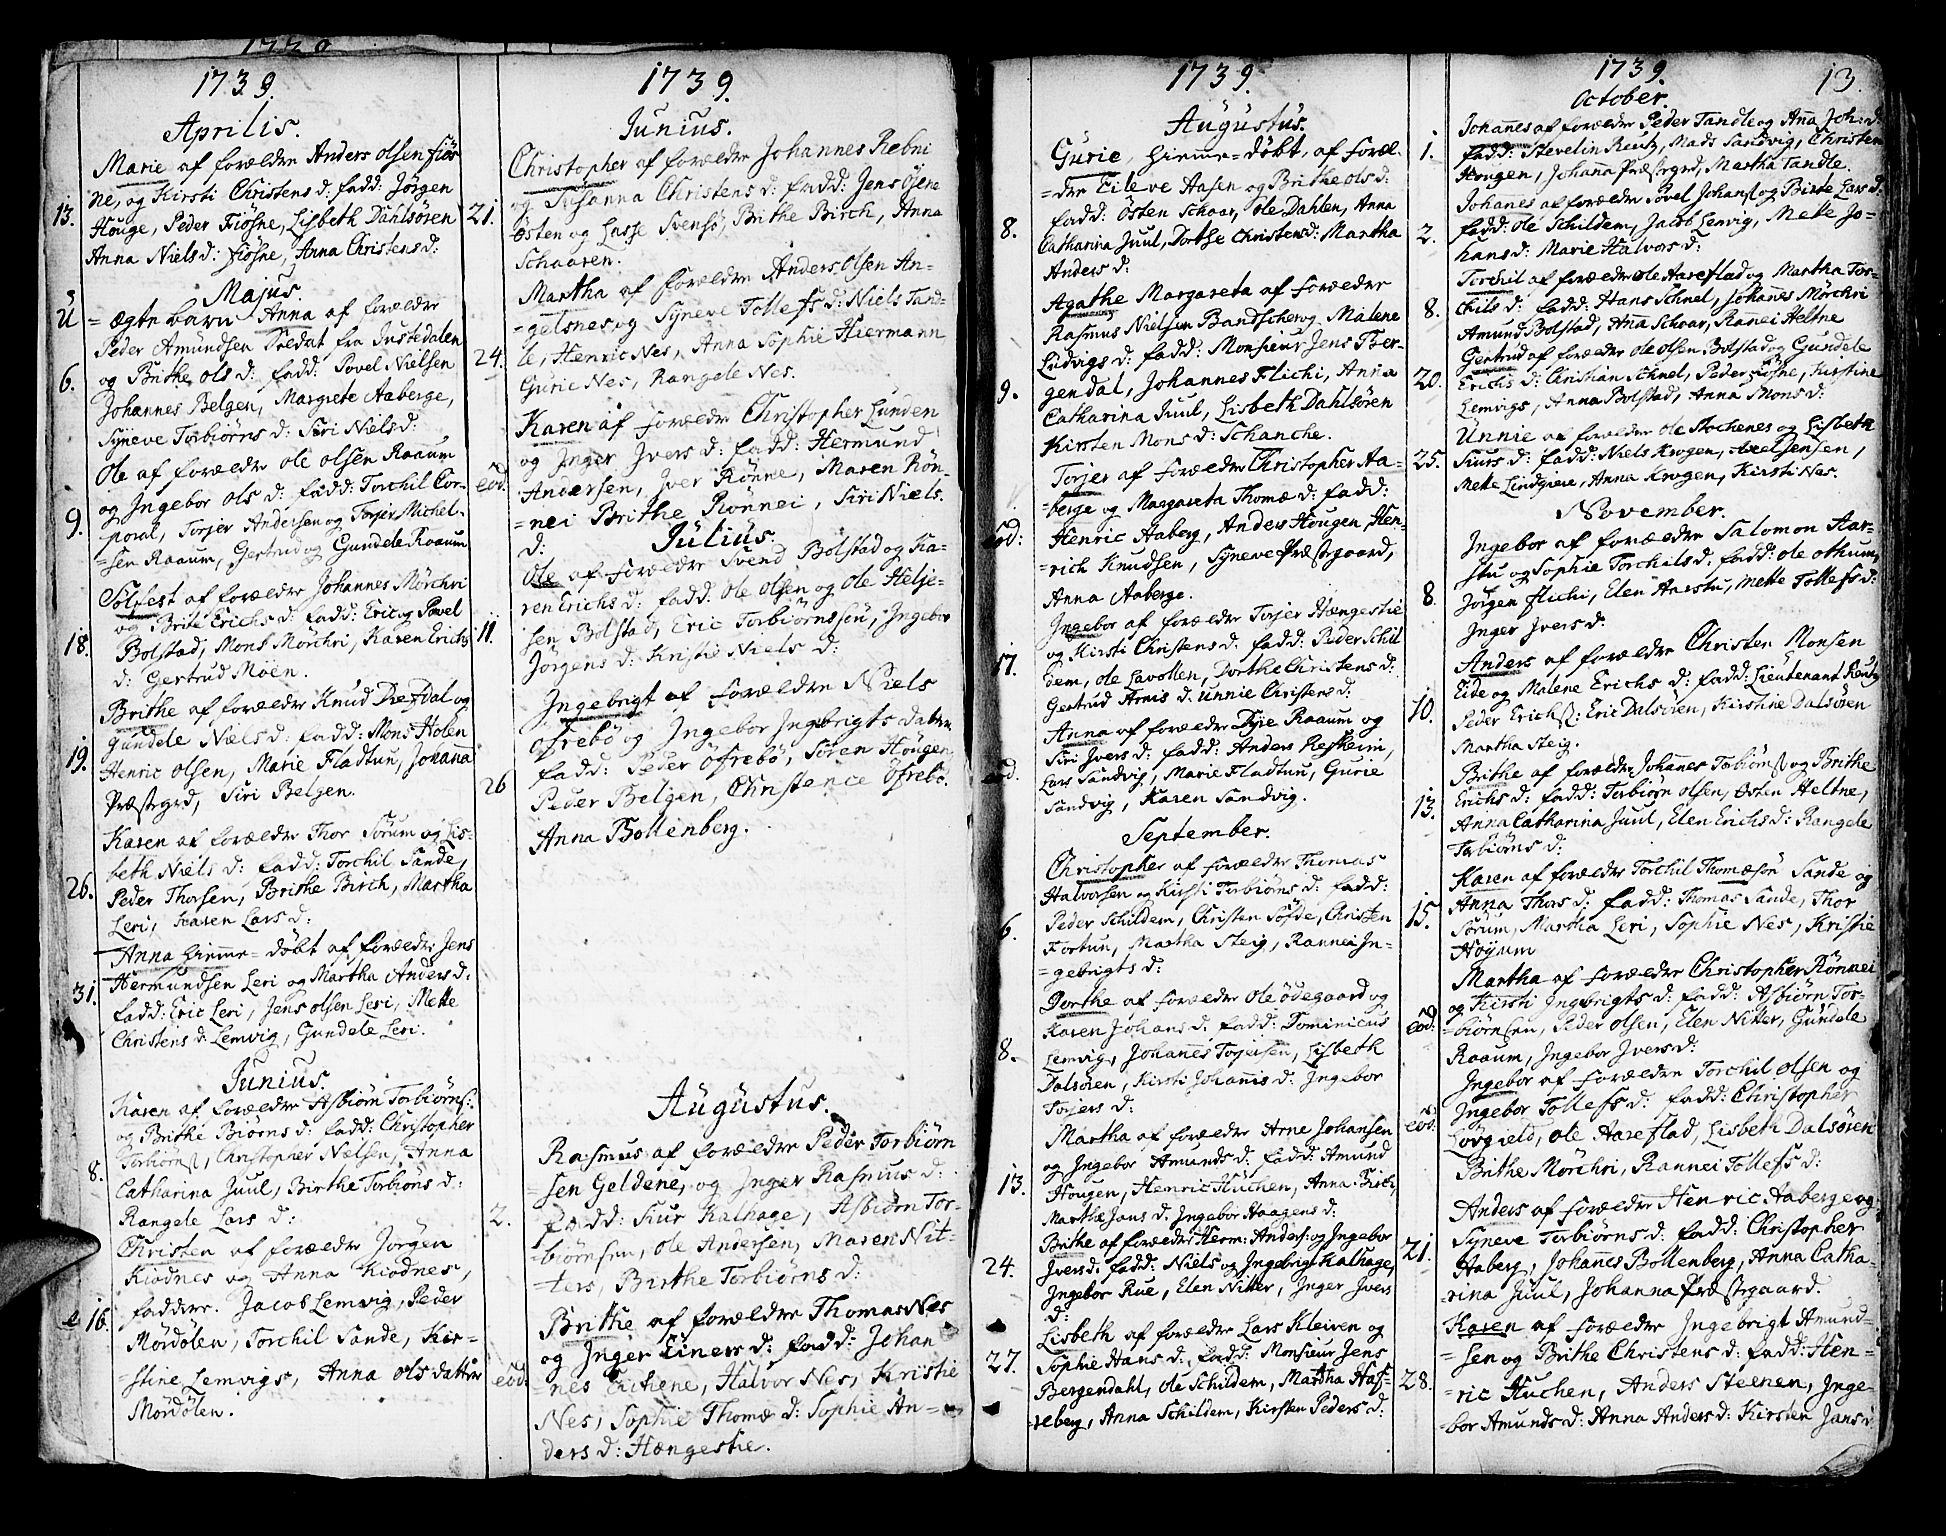 1739.
Aprilis.
Marie af forældre Anders Olsen fiös
13. ne, og Kirsti Christens d: fadd: Jörgen
Houge, Peder Fiösne, Lisbeth Dahlsören
Anna Niels d: fiösne, Anna Christens d:
Majus.
U = ægte barn Anna af forældre
Peder Amundsen Soldat fra Justedalen
6. og Brithe Ols d: fadd: Povel Nielsen
Johannes Belgen, Margrete Aaberge,
Syneve Torbiörns d: Siri Niels d:
Ole af forældre Ole Olsen Raaum
og Ingebor Ols d: fadd: Torchil Cor-
9. poral, Torjer Andersen og Torjer Michel-
=sen Raaum, Gertrud og Gundele Raaum
Solfest af forældre Johannes Mörchri
og Brite Erichs d: fadd: Eric og Povel
18. Bolstad, Mons Mörchri, Karen Erichs
d: Gertrud Moen.
Brithe af forældre Knud Drefdal og
Gundele Niels d: fadd: Mons Holen
19. Henric Olsen, Marie Fladtun, Johana
Præstgrd, Siri Belgen.
Karen af forældre Thor Sörum og Lis-
beth Niels d: fadd: Torchil Sande,
26. Peder Thorsen, Brithe Birch, Martha
Leri, Karen Lars d:
Anna hieme=döbt af forældre Jens
Hermundsen Leri og Martha Anders d:
31. fadd: Eric Leri, Jens Olsen Leri, Mette
Christens d: Lemvig, Gundele Leri.
Junius.
Karen af forældre Asbiörn Torbiörns:
og Brithe Biörns d: fadd: Christopher
Torbiörns, Christopher Nielsen, Anna
8. Catharina Juul, Birthe Torbiörns d:
Rangele Lars d:
Christen af forældre Jörgen
Kiödnes og Anna Kiödnes,
16. faddere. Jacob Lemvig, Peder
Mördölen, Torchil Sande, Kir-
stine Lemvigs, Anna Ols datter
Mördölen.
1739.
Junius.
Christopher af forældre Johannes Rebni
og Susanna Christens d: fadd: Jens Ösene
21. Östen og Lasse Svensö, Brithe Birch, Anna
Schaaren.
Martha af forældre Anders Olsen An-
=gelsnes og Syneve Tollefs d: Niels Tand-
24. le, Henric Nes, Anna Sophie Hiermann
Gurie Nes, Rangele Nes.
Karen af forældre Christopher Lunden
og Inger Ivers d: fadd: Hermund
eod. Andersen, Iver Rönne, Maren Rön-
=nei Brithe Rönnei, Siri Niels
d:
Julius.
Ole af forældre Svend Bolstad og Ka-
ren Erichs d: fadd: Ole Olsen og Ole Helje-
11. sen Bolstad, Eric Torbiörnssen, Ingebor
Jörgens d: Kristie Niels d:
Ingebrigt af forældre Niels
Öfrebö og Ingebor Ingebrigts datter
fadd: Peder Öfrebö, Sören Hougen,
26 Peder Belgen, Christence Öfrebö.
Anna Bollenberg.
Augustus.
Rasmus af forældre Peder Torbiörn
=sen Geldene, og Inger Rasmus d:
2. fadd: Siur Kalhage, Asbiörn Tor-
=biörnsen, Ole Andersen, Maren Nit-
=ters, Birthe Torbiörns d:
Brithe af forældre Thomas Nes
og Inger Einers d: fadd: Johan
eod. =nes Eichene, Halvor Nes, Kristie
Nes, Sophie Thomæ d: Sophie An-
ders d: Hængestie.
1739.
Augustus.
Gurie, hieme=döbt, af foræl-
=dre Eileve Aasen og Brithe Ols d:
8. fadd: Östen Schaar, Ole Dahlen, Anna
Catharina Juul, Dorthe Christens d: Martha
Anders d:
Agathe Margareta af forældre
Rasmus Nielsen Bandscher og Malene
Ludvigs d: fadd: Monsieur Jens Ber-
9. gendal, Johannes Flichi, Anna
Catharina Juul, Lisbeth Dahlsören
Kirsten Mons d: Schanche.
Torjer af forældre Christopher Aa-
berge og Margareta Thomæ d: fadd:
eod: Henric Aaberg, Anders Hougen, Hen-
rich Knudsen, Syneve Præstgaard,
Anna Aaberge.
Ingebor af forældre Torjer Hængestie
og Kirsti Christens d: fadd: Peder Schil
17. dem, Ole Lavollen, Dorthe Christens d:
Gertrud Arnis d: Unnie Christens d:
Anna af forældre Tyje Raaum og
Siri Ivers d: fadd: Anders Refheim,
eod. Lars Sandvig, Marie Fladtun, Gurie
Sandvig, Karen Sandvig.
September.
Christopher af forældre Thomas
Halvorsen og Kirsti Torbiörns d: fadd:
6. Peder Schildem, Christen Söfde, Christen
Fortun, Martha Steig, Rannei In-
=gebrigts d:
Dorthe af forældre Ole Ödegaard og
Karen Johans d: fadd: Dominicus
8. Lemvig, Johannes Torjersen, Lisbeth
Dalsören, Kirsti Johanis d: Ingebor
Torjers d:
Martha af forældre Arne Johansen
og Ingebor Amunds d: fadd: Amund
13. Hougen, Henric Huchen, Anna Birch,
Marthe Jans d: Ingebor Haagens d:
Brithe af forældre Herm: Anders: og Ingebor
24. Ivers d: fadd: Niels og Ingebrigt Kalhage,
Ingebor Rue, Elen Nitter, Inger Ivers
d:
Lisbeth af forældre Lars Kleiven og
27. Sophie Hans d: fadd: Monsieur Jens
Bergendahl, Ole Schildem, Martha Haf-
=reberg, Anna Schildem, Kirsten Peders d:
1739. 13.
October.
Johannes af forældre Peder Tandle og Ana Joh: d:
1. fadd: Stevelin Reutz, Mads Sandvig, Christen
Hougen, Johana Præstgrd, Martha Tandle.
Johanes af forældre Povel Johans og Birte Lars d:
2. fadd: Ole Schildem, Jacob Lemvig, Mette Jo-
hans d: Marie Halvors d:
Torchil af forældre Ole Aareflad og Martha Tor-
8. chils d: fadd: Hans Schnel, Johanes Mörchri
Amund Bolstad, Ana Schaar, Rannei Heltne
Gertrud af forældre Ole Olsen Bolstad og Gundele
20. Erichs d: Christian Schnel, Peder fiosne, Kirstine
Lemvigs, Anna Bolstad, Anna Mons d:
Unnie af forældre Ole Stochenes og Lisbeth
25. Siurs d: fadd: Niels Krogen, Axel Jensen,
Mette Lindgree, Anna Krogen, Kirsti Nes.
November.
Ingebor af forældre Salomon Aar-
stu og Sophie Torchils d: fadd: Ole Othum,
8. Jörgen flichi, Elen Aarstu, Mette Tollefs d:
Inger Ivers d:
Anders af forældre Christen Monsen
Eide og Malene Erichs d: fadd: Lieutenant Reutz
10. Peder Erichs: Eric Dalsören, Kirstine Dalsören
Martha Steig.
Brithe af forældre Johannes Torbiörns og Brithe
13. Erichs d: fadd: Torbiörn Olsen, Östen Heltne,
Anna Catharina Juul, Elen Erichs d: Rangele
Torbiörns d:
Karen af forældre Torchil Thomæsön Sande og
15. Anna Thors d: fadd: Thomas Sande, Thor
Sörum, Martha Leri, Sophie Nes, Kristie
Höyum
Martha af forældre Christopher Rönnei
og Kirsti Ingebrigts d: fadd: Asbiörn Tor-
eod. =biörnsen, Peder Olsen, Elen Nitter, Gundele
Raaum, Ingebor Ivers d:
Ingebor af forældre Torchil Olsen og
eod. Ingebor Tollefs d: fadd: Christopher
Lörgield, Ole Aareflad, Lisbeth Dalsören
Brithe Mörchri, Rannei Tollefs d:
Anders af forældre Henric Aaberge og
Syneve Torbiörns d: fadd: Christopher
21. Aaberg, Johannes Bollenberg, Anna Catha-
=rina Juul, Johanna Præstgaard.
Karen af forældre Ingebrigt Amund-
=sen og Brithe Christens d: fadd: Hen-
28. =ric Huchen, Anders Steenen, Inge-
bor Amunds d: Anna Anders d: Kirsten Jans d